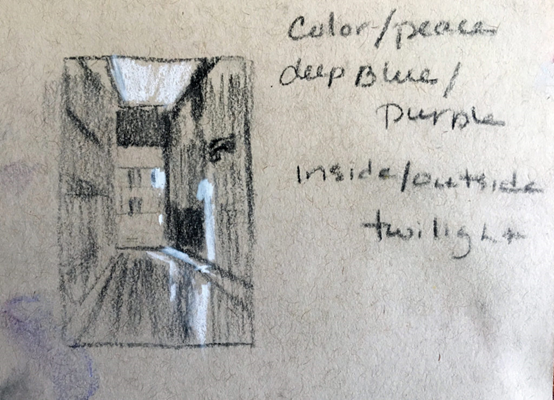 Color/peace
deep Blue/
Purple
inside/outside
twilight